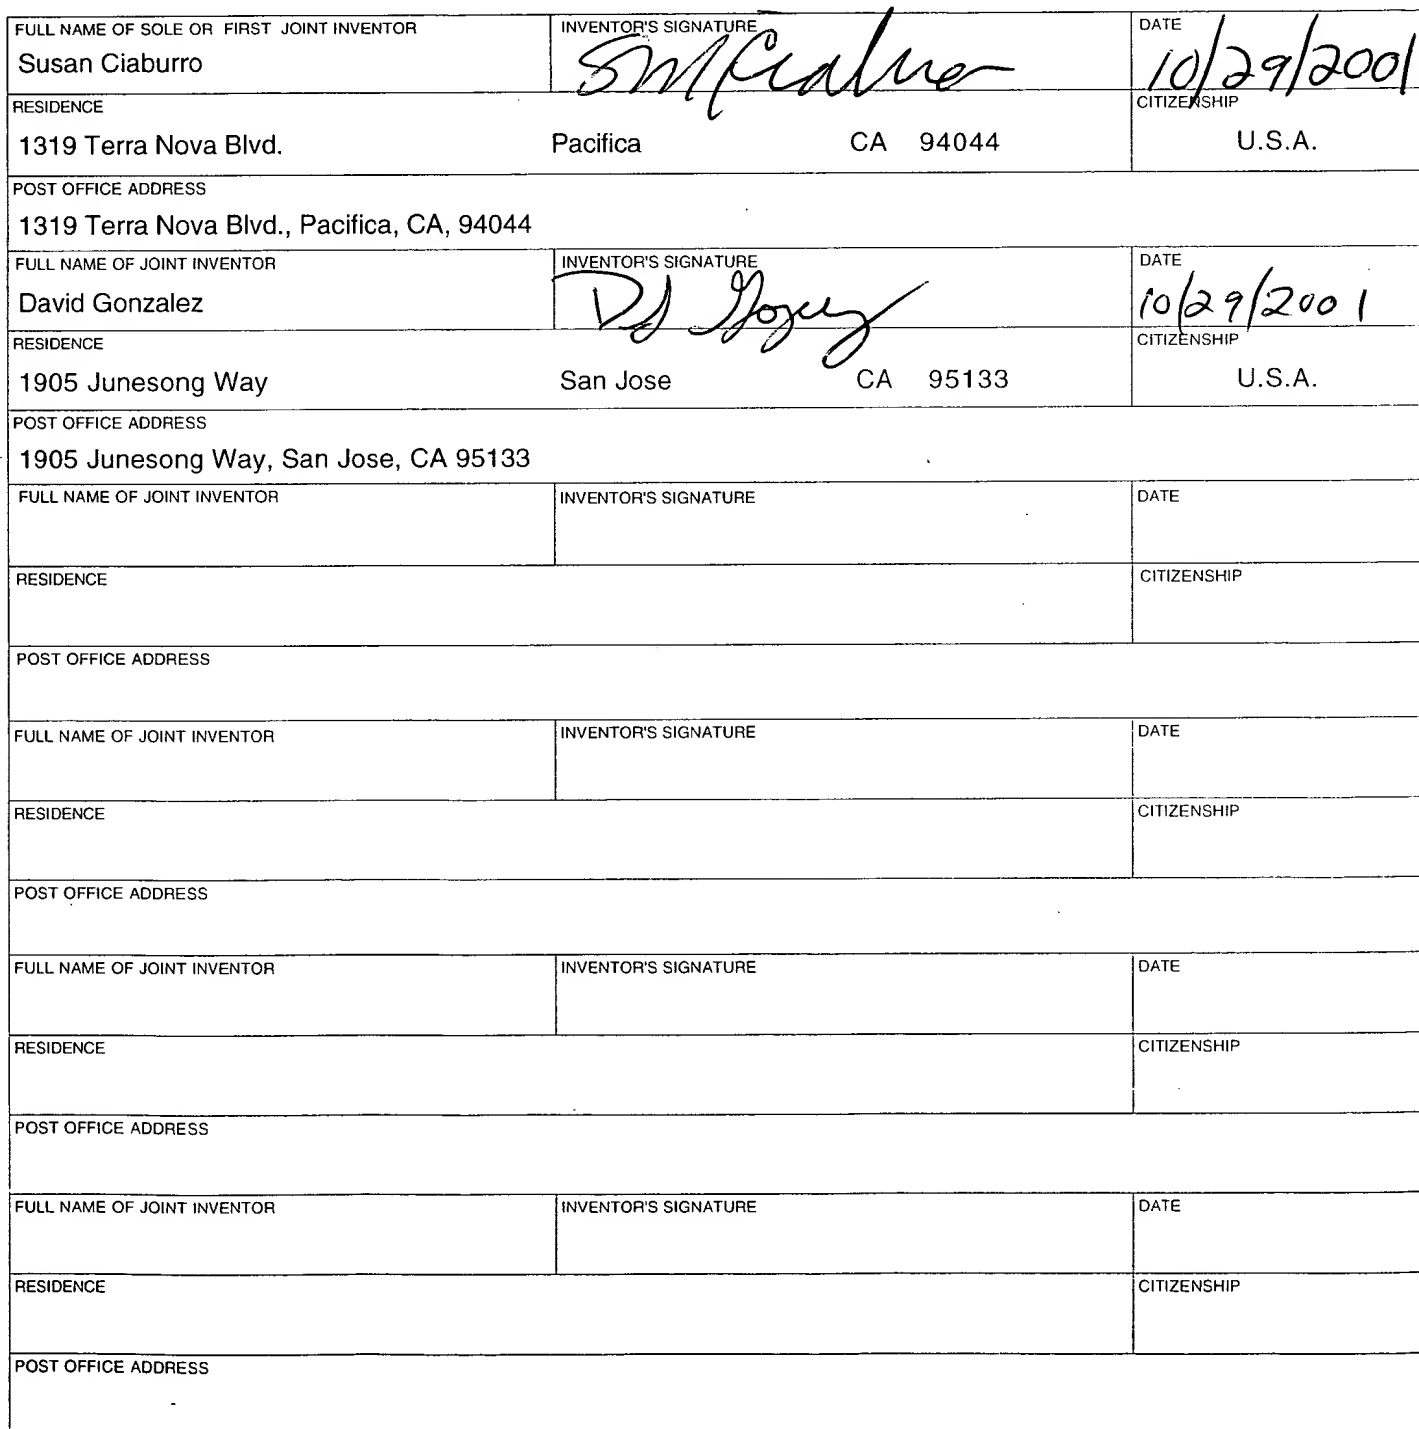 FULL NAME OF SOLE OR FIRST JOINT INVENTOR INVENTOR'S SIGNATURE DATE
Susan Ciaburro SM Ciaburro 10/29/2001
RESIDENCE CITIZENSHIP
1319 Terra Nova Blvd. Pacifica CA 94044 U.S.A.
POST OFFICE ADDRESS
1319 Terra Nova Blvd., Pacifica, CA, 94044
FULL NAME OF JOINT INVENTOR INVENTOR'S SIGNATURE DATE
David Gonzalez 10/29/2001
RESIDENCE CITIZENSHIP
1905 Junesong Way San Jose CA 95133 U.S.A.
POST OFFICE ADDRESS
1905 Junesong Way, San Jose, CA 95133
FULL NAME OF JOINT INVENTOR INVENTOR'S SIGNATURE DATE
RESIDENCE CITIZENSHIP
POST OFFICE ADDRESS
FULL NAME OF JOINT INVENTOR INVENTOR'S SIGNATURE DATE
RESIDENCE CITIZENSHIP
POST OFFICE ADDRESS
FULL NAME OF JOINT INVENTOR INVENTOR'S SIGNATURE DATE
RESIDENCE CITIZENSHIP
POST OFFICE ADDRESS
FULL NAME OF JOINT INVENTOR INVENTOR'S SIGNATURE DATE
RESIDENCE CITIZENSHIP
POST OFFICE ADDRESS